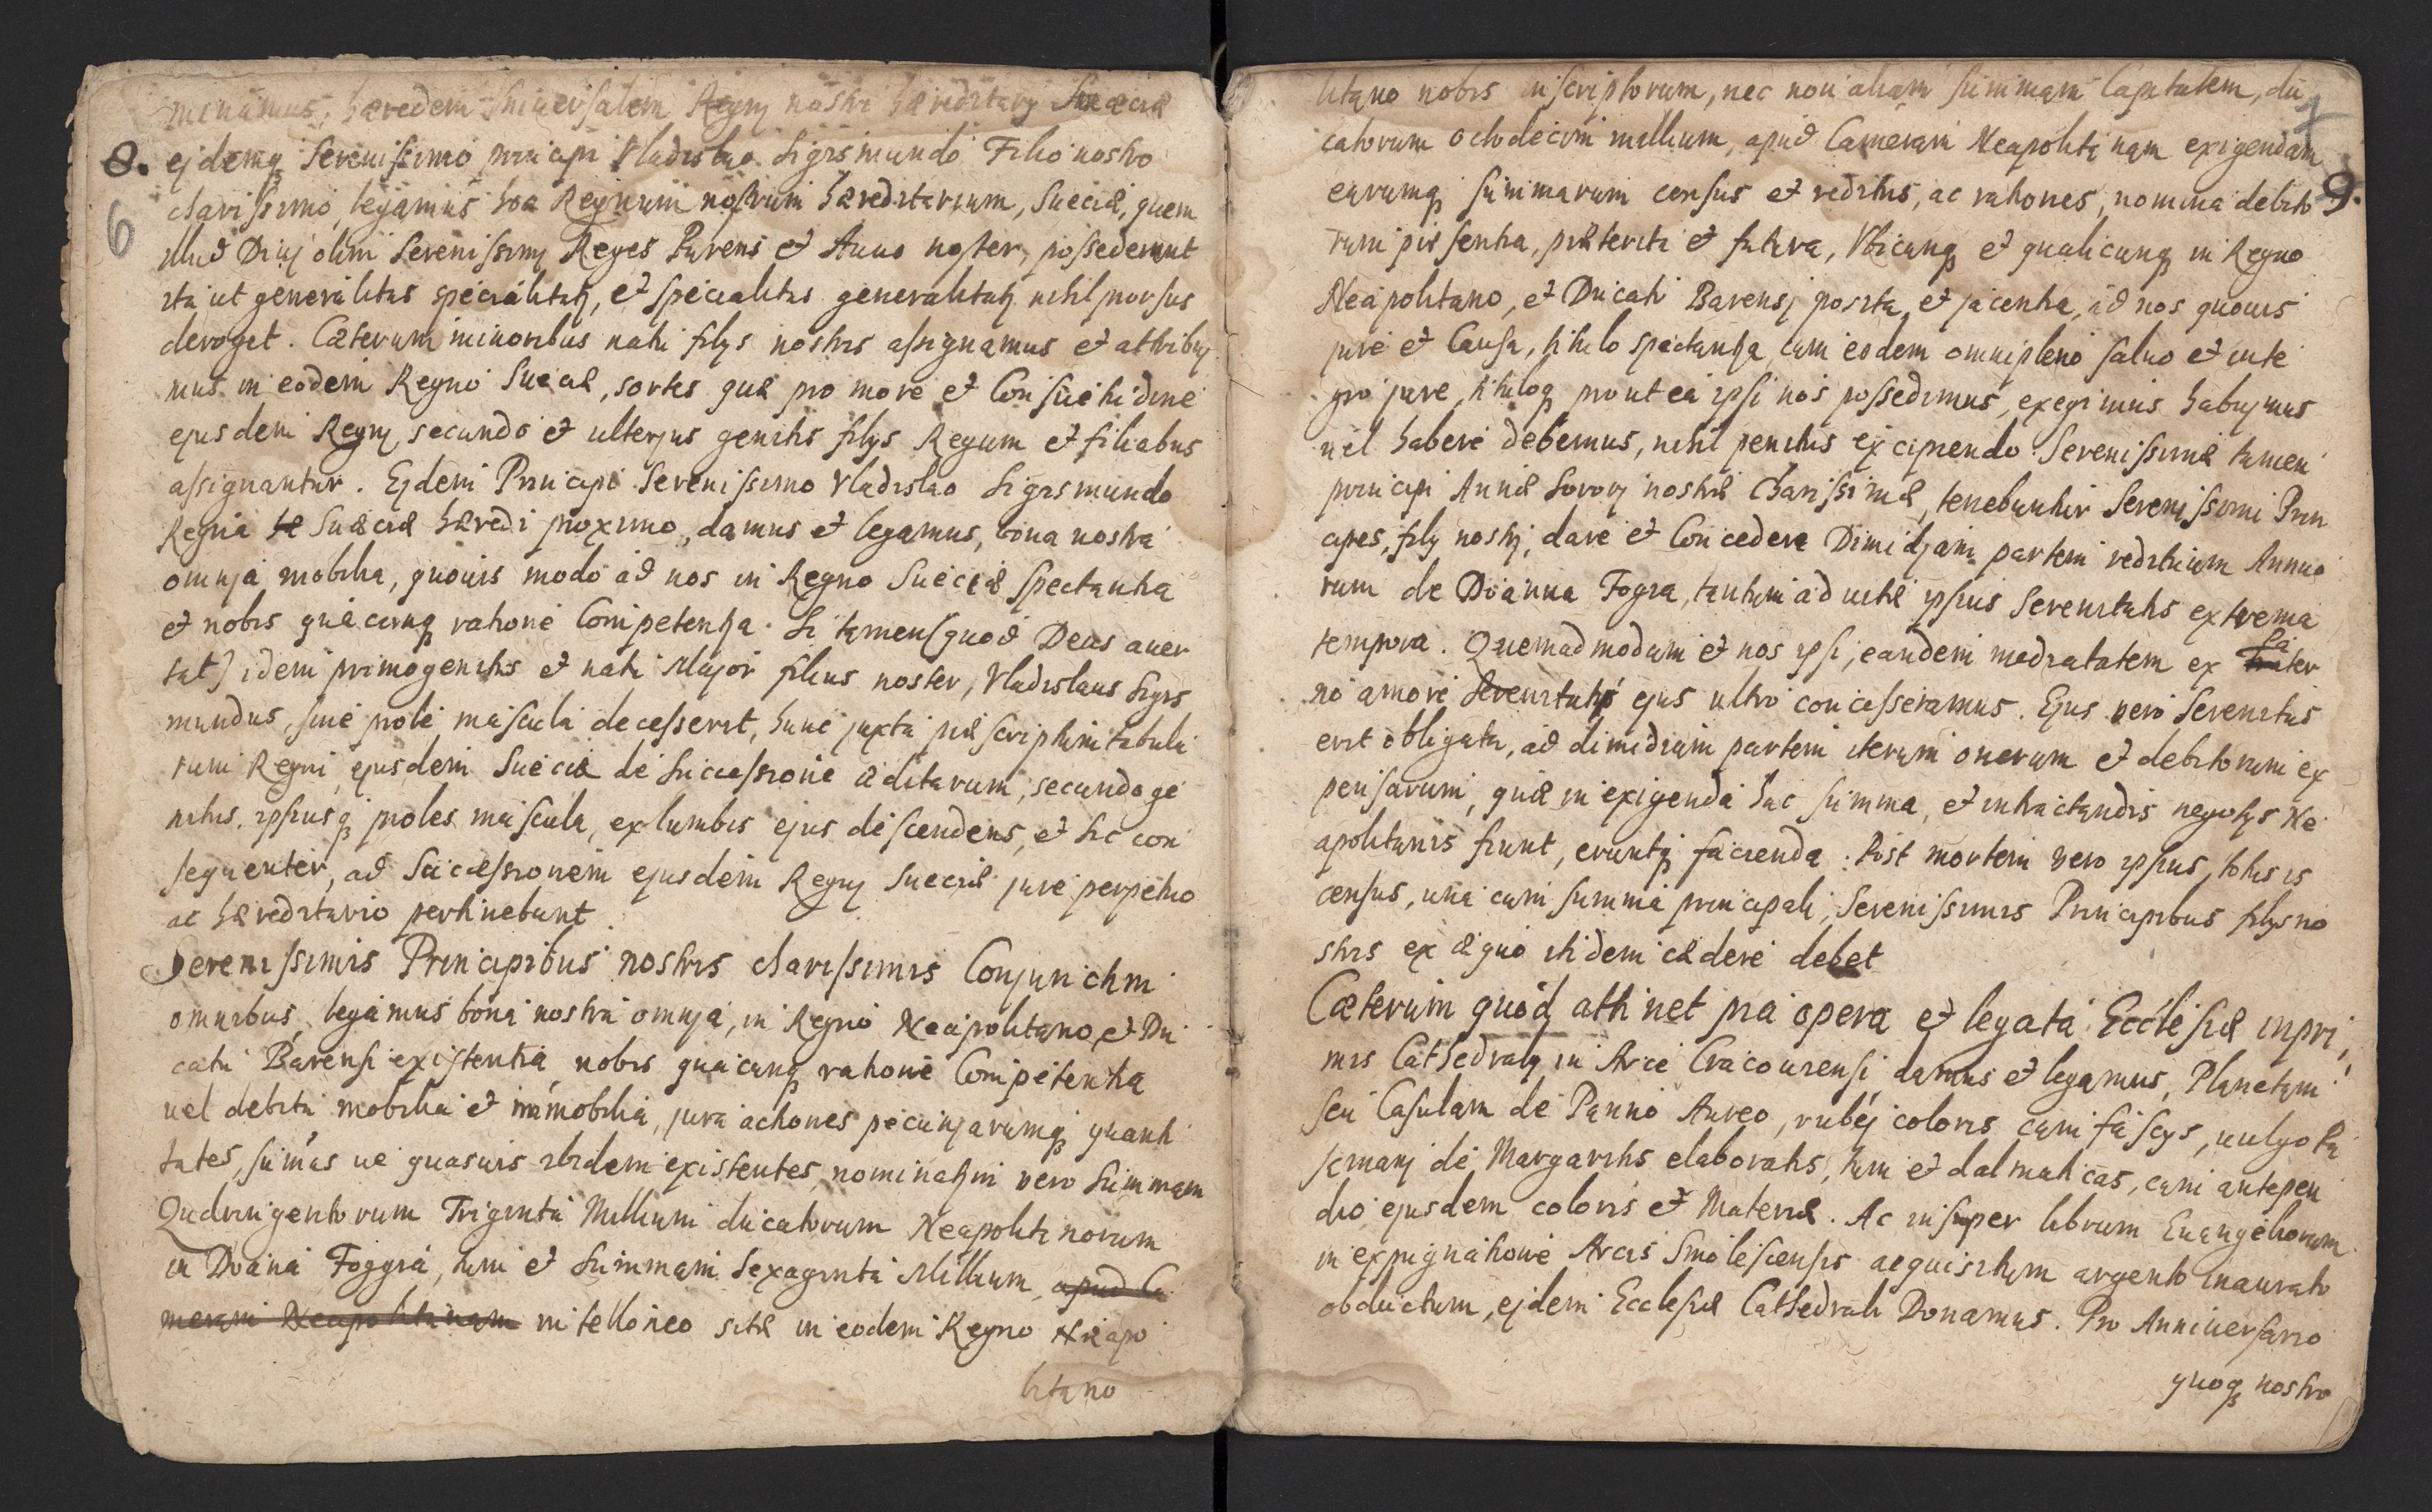 minamus, hæredem Universalem Regnj nostri hæreditarij Suæciæ
8. ejdemq̨ Serenissimo principi Vladislao Sigismundo Filio nostro
6
charissimo, legamus hoc Regnum nostrum hæreditarium, Sueciæ, quem
illud Diuj olim Serenissimj Reges Parens et Auus noster, possederunt
ita ut generalitas specialitatj, et specialitas generalitatj nihil prorsus
deroget. Cæterum minoribus natu filijs nostris assignamus et attribuj
mus in eodem Regno Sueciæ, sortes quæ pro more et Consuetudine
ejusdem Regnj, secundo et ulterjus genitis filijs Regum et filiabus
assignantur. Ejdem Principi Serenissimo Vladislao Sigismundo
Regnia Suæciæ hæredi proximo, damus et legamus, bona nostra
omnja mobilia, quouis modo ad nos in Regno Sueciæ spectantia
et nobis quacunq̨ ratione Competentja. Si tamen (quod Deus auer
tat) idem primogenitus et natu Major filius noster, Vladislaus Sigis
mundus, sine prole mascula decesserit, tunc juxta præscriptum tabula
rum Regni ejusdem Sueciæ de Successione æditarum, secundo ge
nitus, ipsiusq̨ proles mascula, ex lumbis ejus descendens, et sic con
sequenter, ad Successionem ejusdem Regnj Sueciæ jure perpetuo
ac hæreditario pertinebunt.
Serenissimis Principibus nostris charissimis Conjunctim
omnibus, legamus bona nostra omnja, in Regno Neapolitano, et Du
catu Barensi existentia nobis quacunq̨ ratione Competentia
uel debita mobilia et immobilia, jura actiones pecunjarumq̨ quanti
tates, sum̄as ue quasuis ibidem existentes, nominatjm vero Summam
Quadringentorum Triginta Millium ducatorum Neapolitanorum
in Doana Foggia, tum et Summam Sexaginta Millium, apud Ca
meram Neapolitanam in telloneo sitæ in eodem Regno Neapo
litano
litano nobis inscriptorum, nec non aliam summam Capitalem, du
7
catorum octodecim millium, apud Cameram Neapolitanam exigendam
earumq̨ summarum census et reditus, ac rationes, nomina debito 9.
rum præsentia, præterita et futura, Vbicunq̨ et qualicunq̨ in Regno
Neapolitano, et Ducatu Barensj posita, et jacentia, ad nos quouis
jure et Causa, titulo spectantja, cum eodem omnipleno saluo et inte
gro jure, tituloq̨ prout ea ipsi nos possedimus, exegimus habujmus
uel habere debemus, nihil penitus excipiendo. Serenissimæ tamen
principi Annæ Sorori nostræ Charissimæ, tenebuntur Serenissimi Prin
cipes, filij nostrj, dare et Concedere Dimidjam partem redituum Annuo
rum de Doanna Fogia, tantum ad uitæ ipsius Serenitatis extrema
tempora. Quemadmodum et nos ipsi, eandem medietatem ex frater
no amore Serenitatj ejus ultro concesseramus. Ejus vero Serenitas
erit obligata, ad dimidiam partem iterum onerum et debitorum ex
pensarum, quæ in exigenda hac summa, et in tractandis negotijs Ne
apolitanis fiunt, eruntq̨ facienda: Post mortem vero ipsius, totus is
census, una cum summa principali, Serenissimis Principibus filijs no
stris ex æquo itidem cædere debet
Cæterum quod attinet pia opera et legata Ecclesiæ inpri,
mis Cathedralj in Arce Cracouiensi damus et legamus, Planetam
seu Casulam de Panno Aureo, rubej coloris cum fascijs, uulgo Pa
semanj de Margaritis elaboratis, tum et dalmaticas, cum antepen
dio ejusdem coloris et Materiæ. Ac insuper librum Euangeliorum
in expugnatione Arcis Smolescensis acquisitum argento inaurato
obductum, ejdem Ecclesiæ Cathedrali Donamus. Pro Anniuersario
quoq̨ nostro